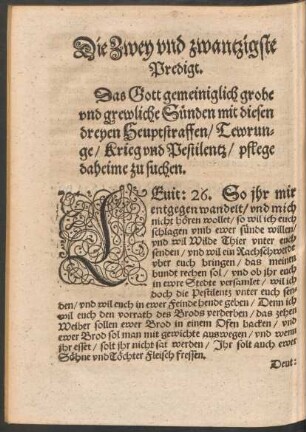 Die Zwey vnd zwantzigste
Predigt.
Das Gott gemeiniglich grobe
vnd grewliche Sünden mit diesen
dreyen Heuptstraffen / Tewrun-
ge / Krieg vnd Pestilentz / pflege
daheime zu suchen.
LEuit: 26. So jhr mir
entgegen wandelt / vnd mich
nicht hören wollet / so wil ich euch
schlagen vmb ewer sünde willen /
vnd wil Wilde Thier vnter euch
senden / vnd wil ein Rachschwerde
vber euch bringen / das meinen
bundt rechen sol / vnd ob jhr euch
in ewre Stedte versamlet / wil ich
doch die Pestilentz vnter euch sen-
den / vnd wil euch in ewer Feinde hende geben / Denn ich
wil euch den vorrath des Brods verderben / das zehen
Weiber sollen ewer Brod in einem Ofen backen / vnd
ewer Brod sol man mit gewichte auswegen / vnd wenn
jhr esset / solt jhr nicht sat werden / Jhr solt auch ewer
Söhne vnd Töchter Fleisch fressen.
Deut: